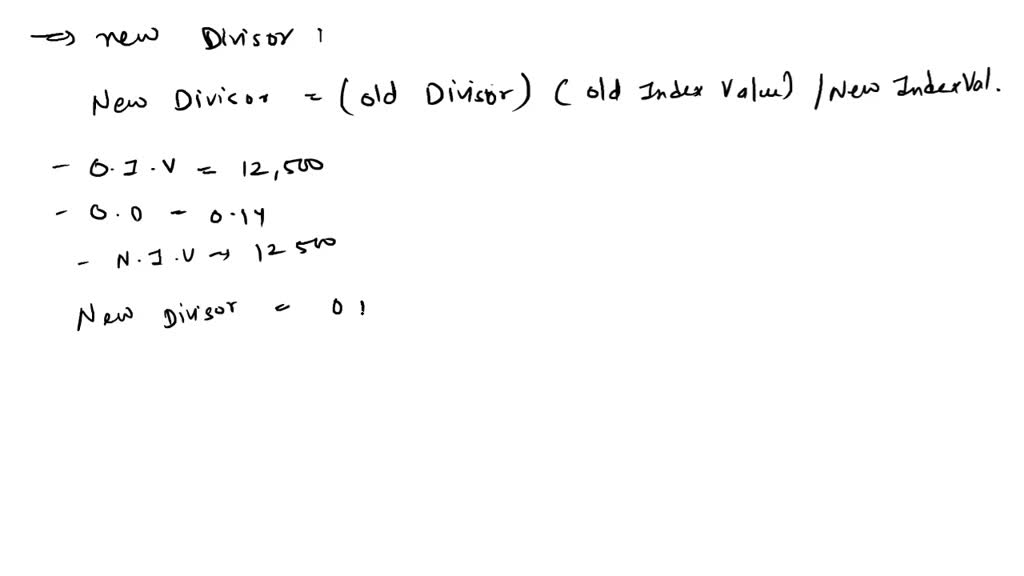 ⇒ new Divisor :
New Divicor = (old Divisor) ( old Index Value) / New Index Val.
- O.I.V = 12,500
- O.O - 0.14
- N.I.V → 12 500
New Divisor = 0 1